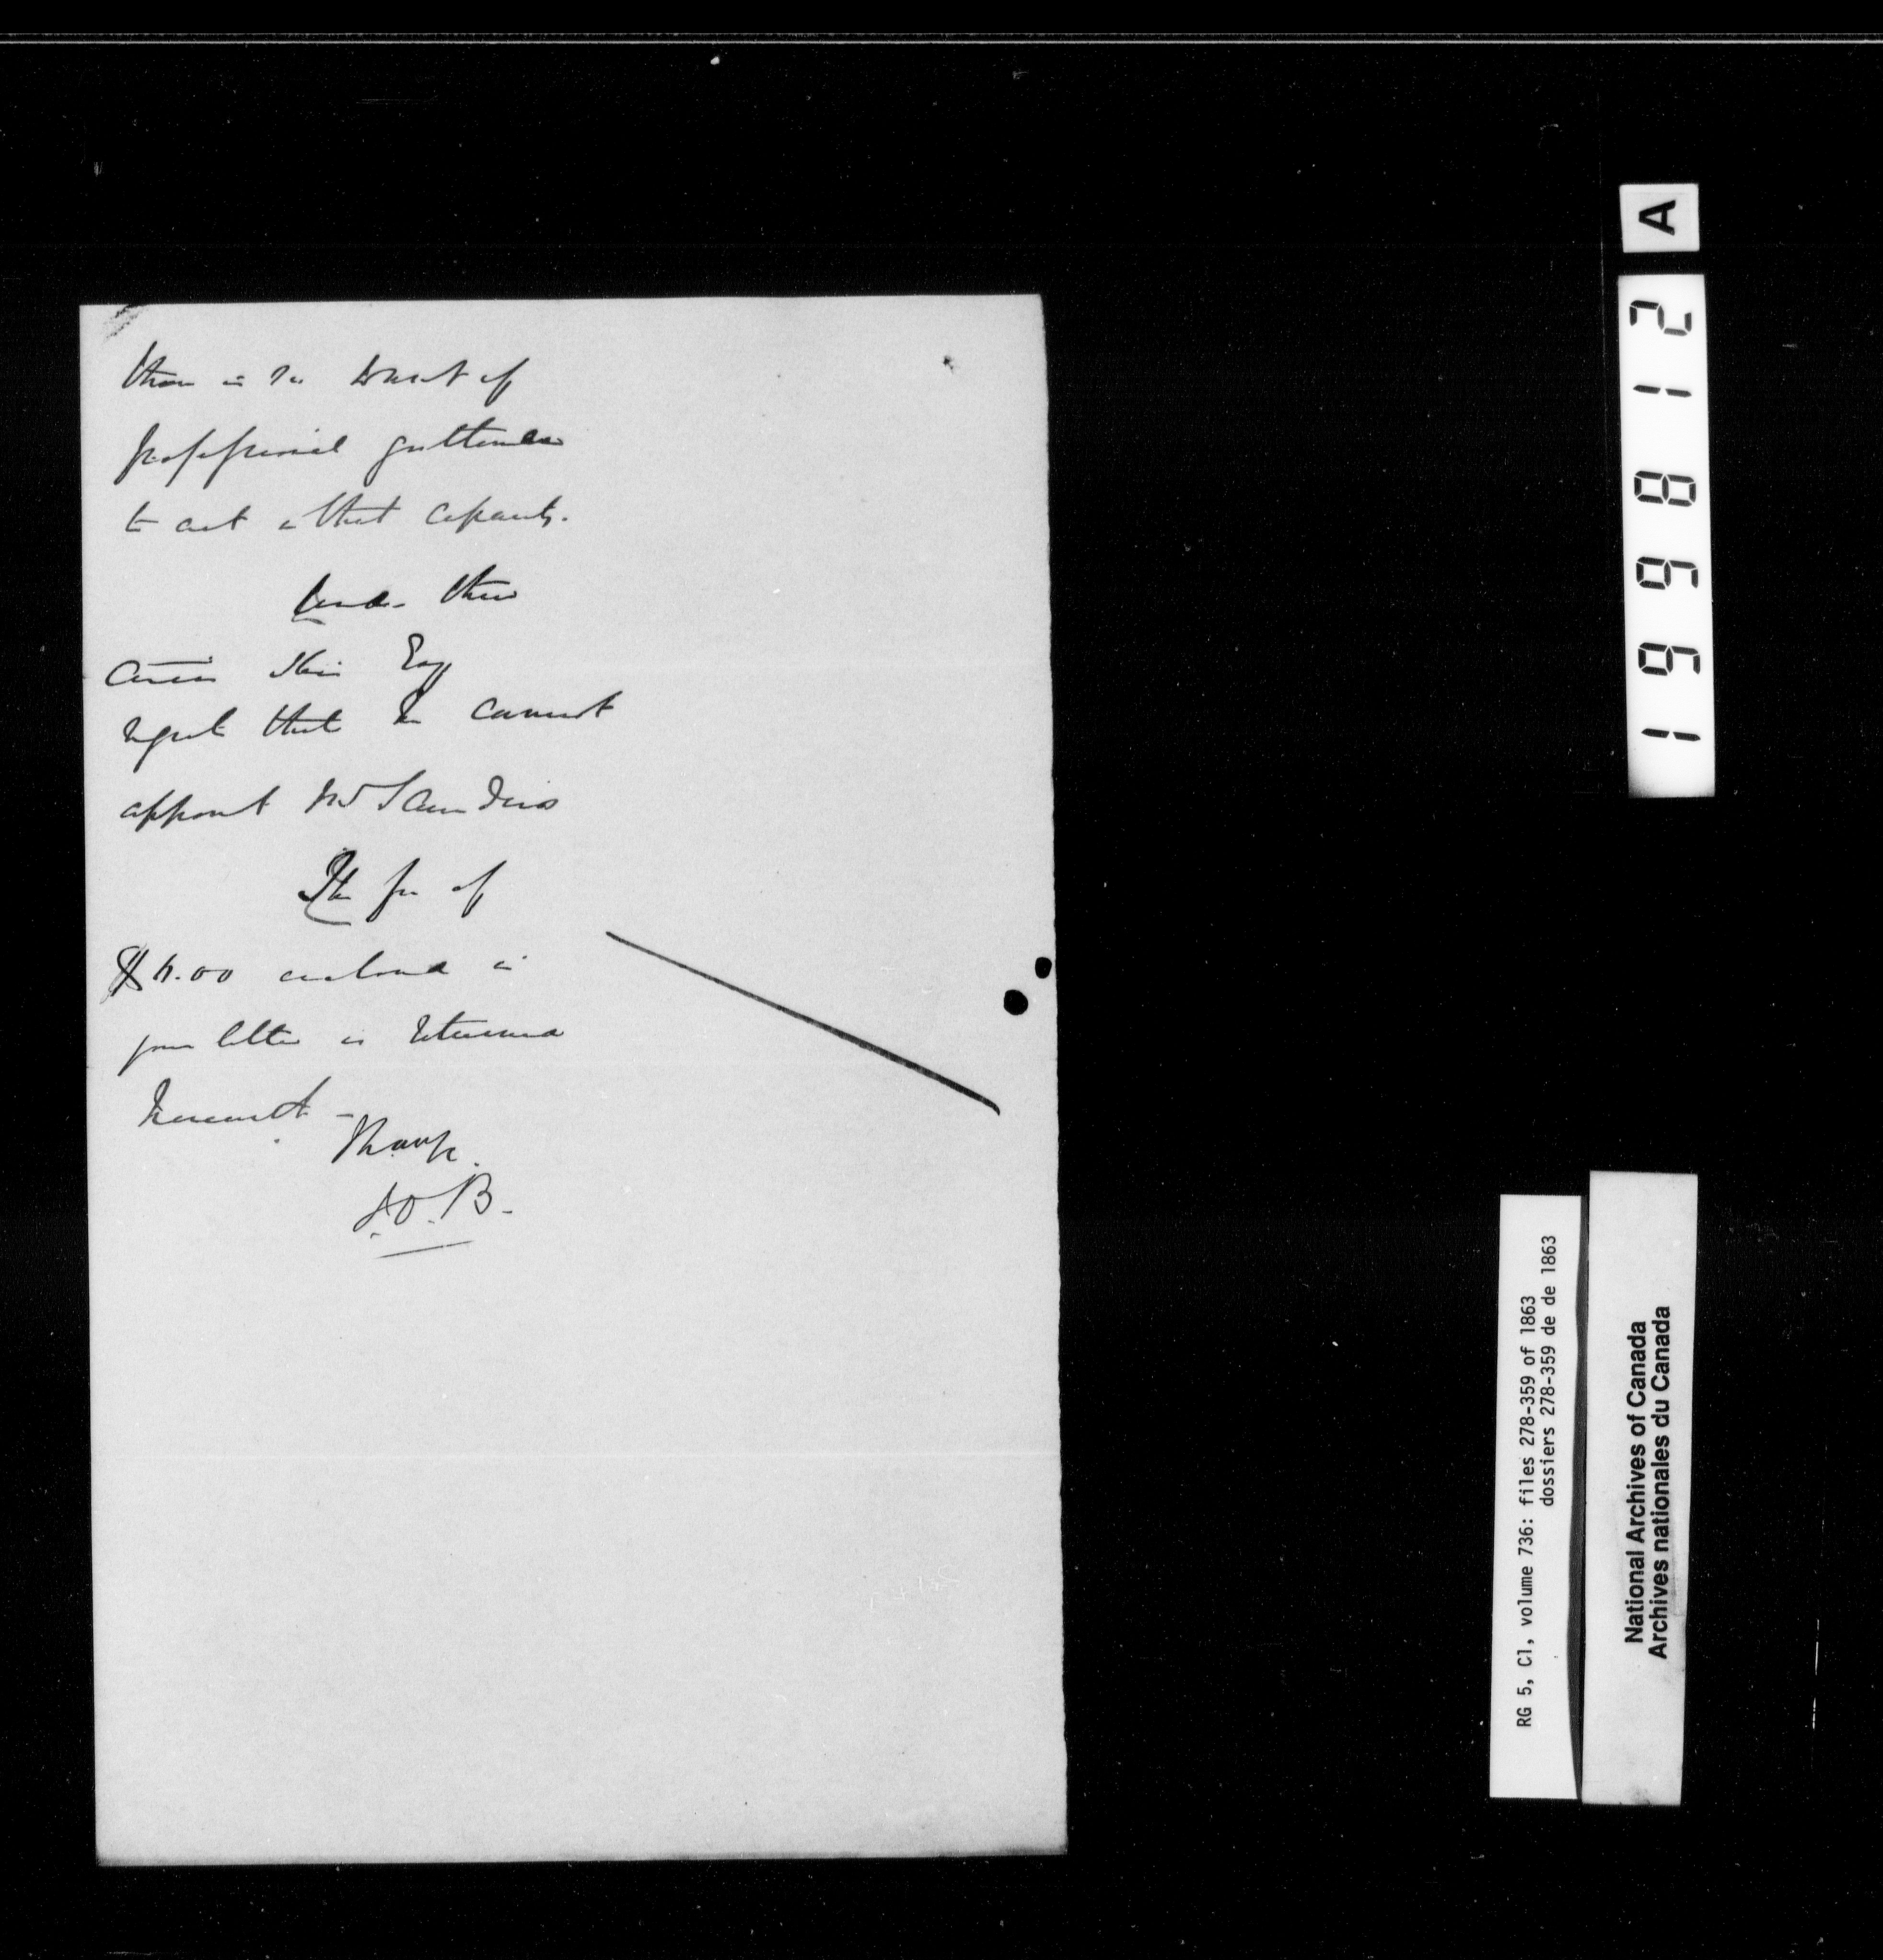 there is no want of
professional gentlemen
to act in that capacity.
Under these
Circes His Exy
regrets that he cannot
appoint Mr Saunders
The fee of
$4.00 enclosed in
your letter is returned
herewith -
A
219981
RG 5, C1, volume 736: files 278-359 of 1863
dossiers 278-359 de de 1863
National Archives of Canada
Archives nationales du Canada